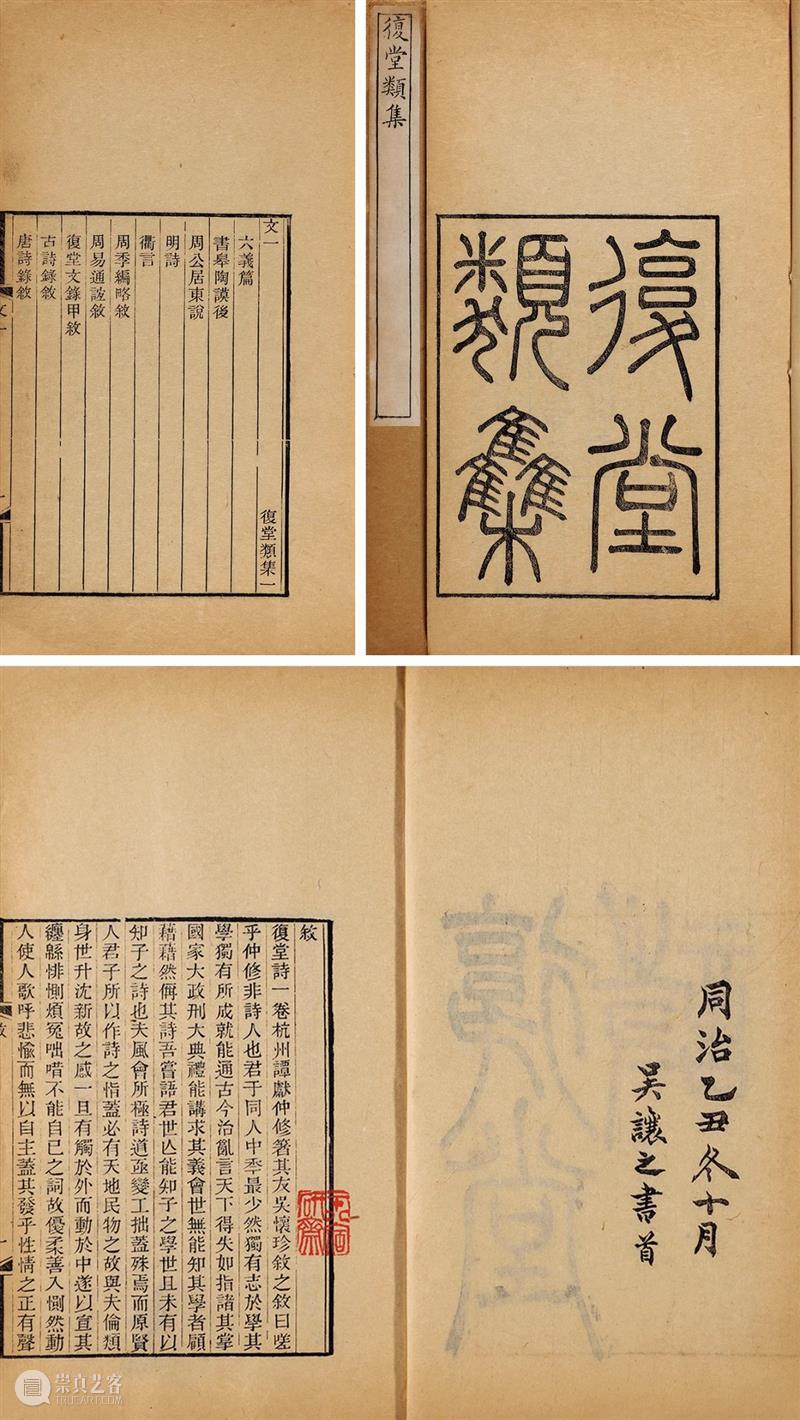 文一
六義篇
書舉陶謨後
周公居東說
明詩
衢言
周季編略敘
周易通詁敘
復堂文錄甲敘
古詩錄敘
唐詩錄敘
文一
復堂類集一
復堂類集
復堂
類集
敘
復堂詩一卷杭州譚獻仲修箸其友吳懷珍敘之敘曰嗟
乎仲修非詩人也君于同人中秊最少然獨有志於學其
學獨有所成就能通古今治亂言天下得失如指諸其掌
國家大政刑大典禮能講求其義會世無能知其學者顧
藉藉然偁其詩吾嘗語君世亾能知子之學世且未有以
知子之詩也夫風會所極詩道亟變工拙蓋殊焉而原賢
人君子所以作詩之恉蓋必有天地民物之故與夫倫類
身世升沈新故之感一旦有觸於外而動於中遂以宣其
纏緜悱惻煩冤咄唶不能自已之詞故優柔善入惻然動
人使人歌呼悲愉而無以自主蓋其發乎性情之正有聲
敘
同治乙丑冬十月
吳讓之書首
崇真艺客
TRUEART.COM